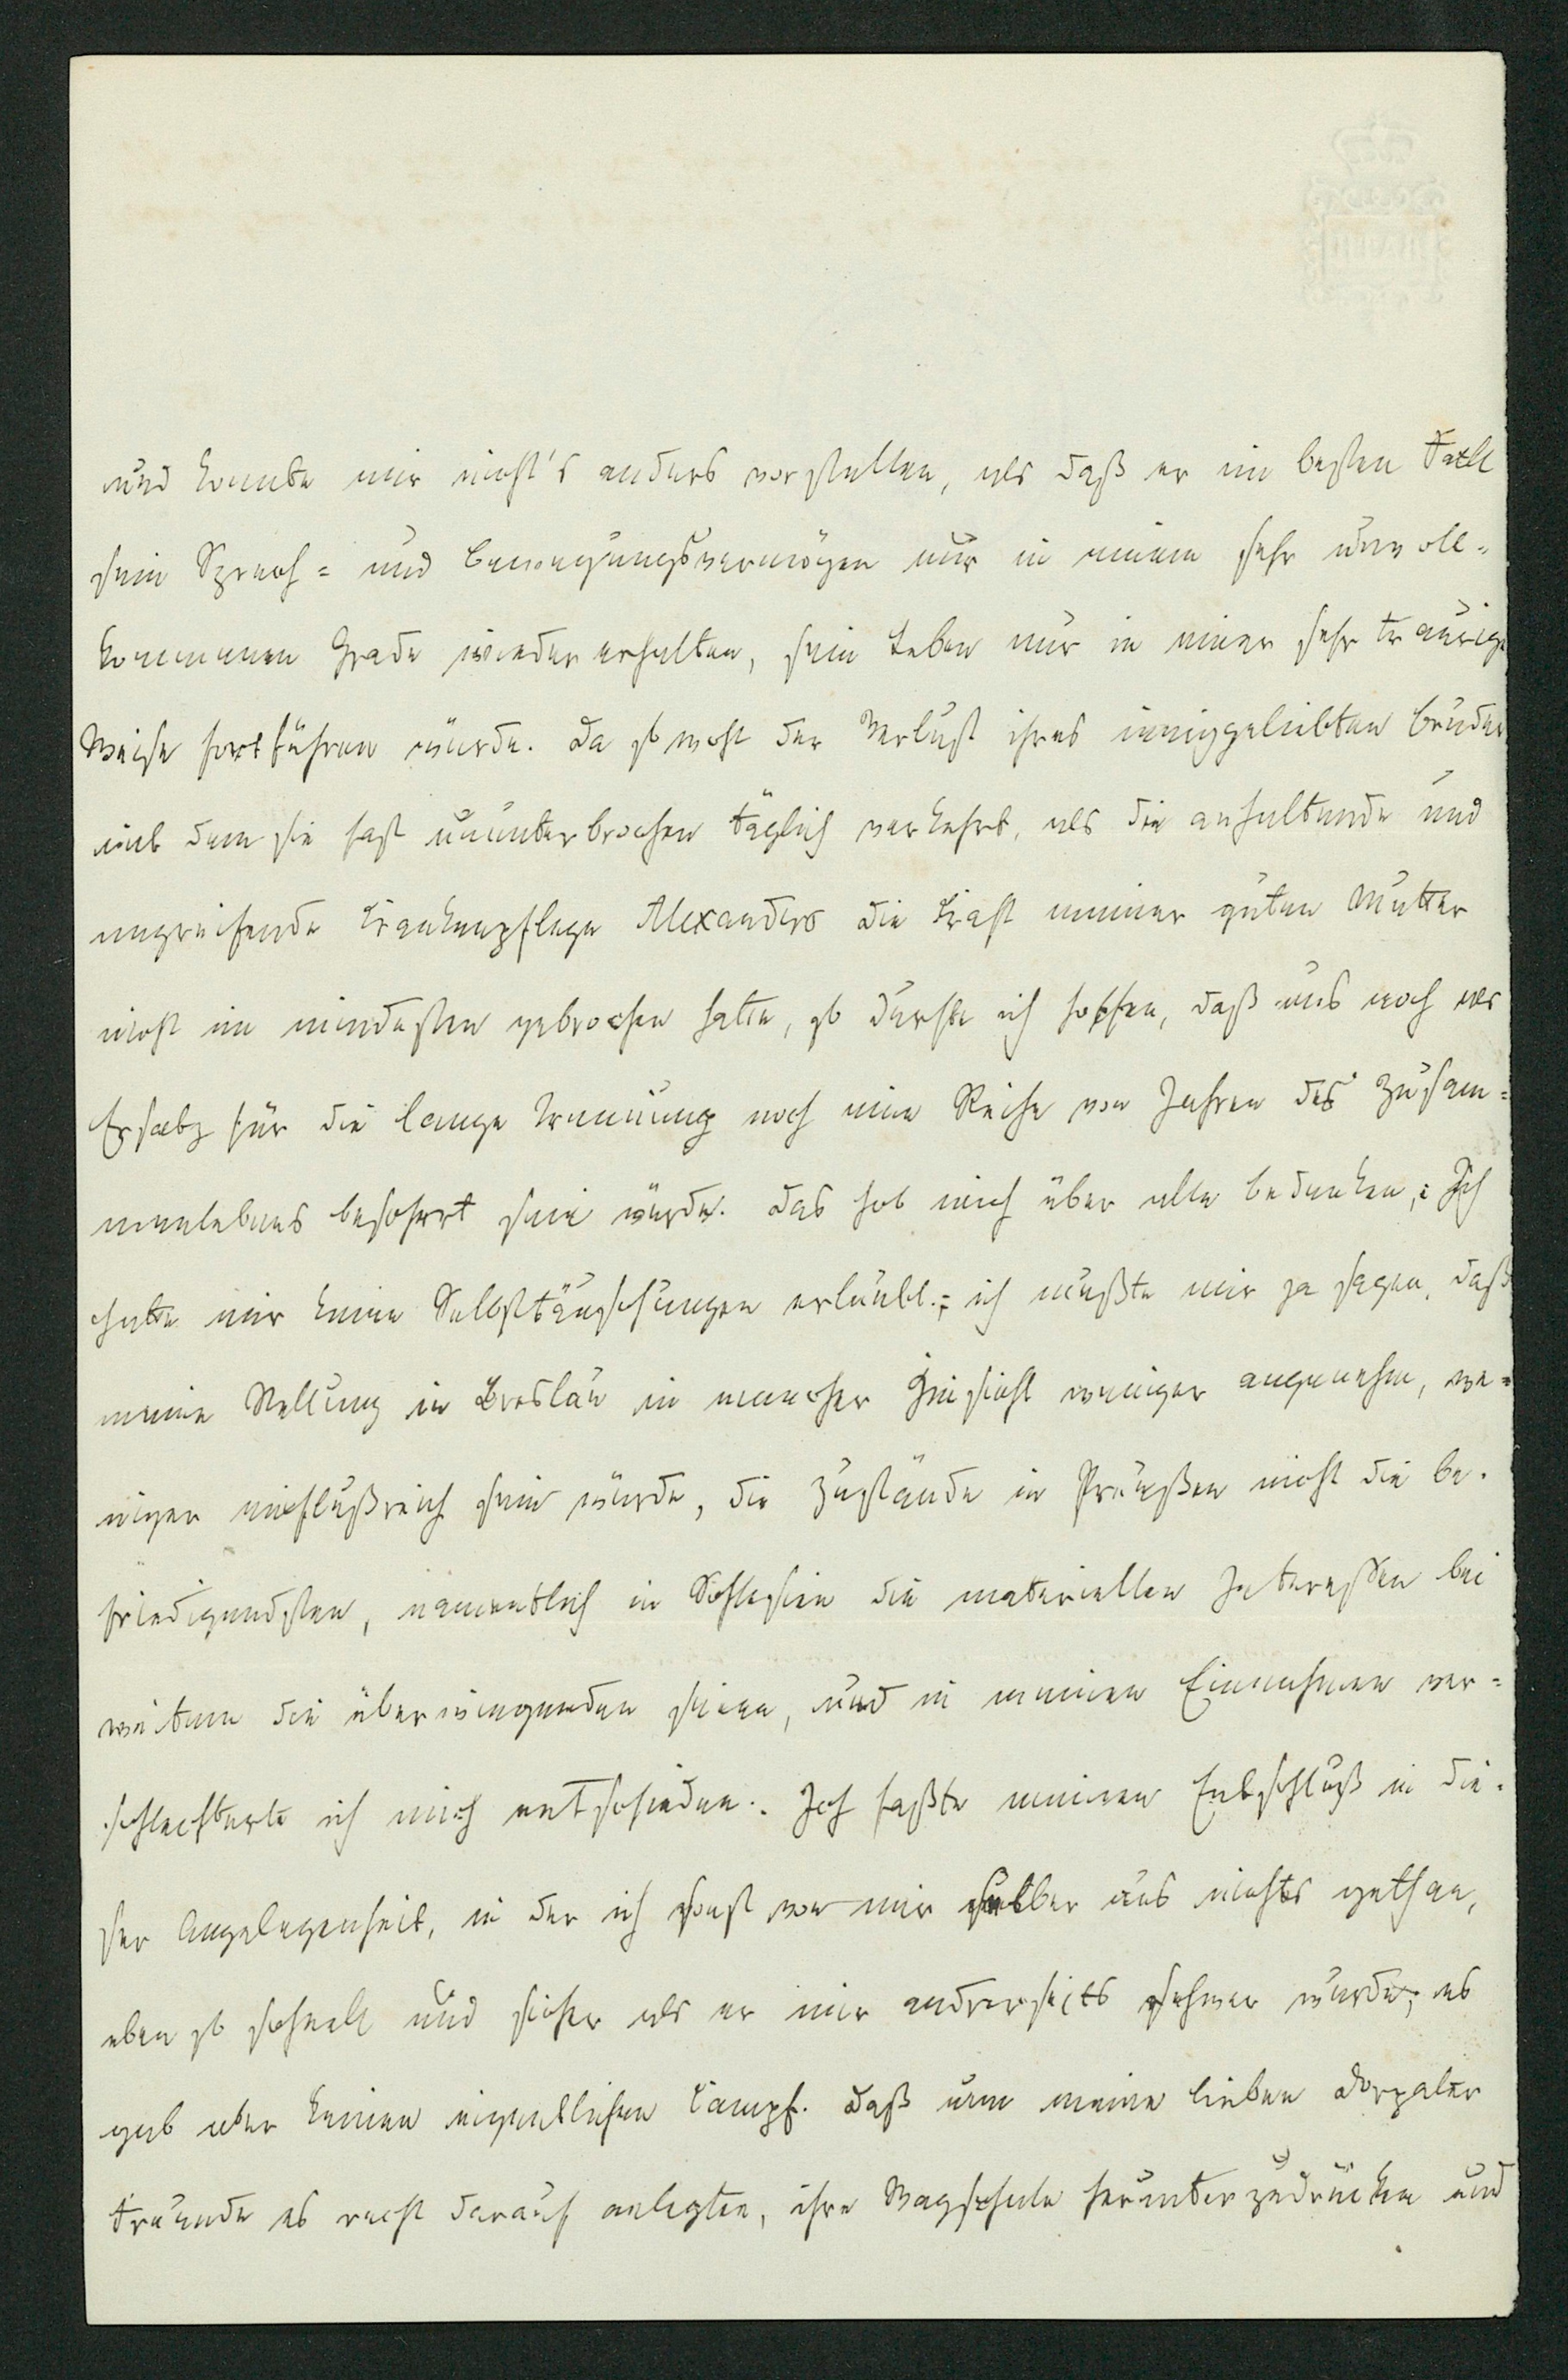 und konnte mir nicht's anders vorstellen, als daß er im besten Fall
sein Sprach= und Bewegungsvermögen nur in einem sehr unvoll-
kommenen Grade wiedererhalten, sein Leben nur in einer sehr traurigen
Weise fortführen würde. Da so wohl der Verlust ihres inniggeliebten Bruders
mit dem sie fast ununterbrochen täglich verkehrt, als die anhaltende und
angreifende Krankenpflege Alexanders die Kraft meiner guten Mutter
nicht im mindesten gebrochen hatte, so durfte ich hoffen, daß uns noch als
Ersatz für die lange Trennung noch eine Reihe von Jahren des Zusam=
menlebens beschert sein würde. Das hob mich über alle Bedenken, Ich
habe mir keine Selbsttäuschungen erlaubt; ich mußte mir ja sagen, daß
meine Stellung in Breslau in mancher Hinsicht weniger angenehm, we=
niger einflußreich sein würde, die Zustände in Preußen nicht die be-
friedigendsten, namentlich in Schlesien die materiellen Interessen bei
weitem die überwiegenden seien, und in meinen Einnahmen ver=
schlechterte ich mich entschieden. Ich faßte meinen Entschluß in die-
ser Angelegenheit, in der ich sonst von mir selber aus nichts gethan,
eben so schnell und sicher als er mir andrerseits schwer wurde; es
gab aber keinen eigentlichen Kampf. Daß nun meine lieben Dorpater
Freunde es recht darauf anlegten, ihre Wagschale herunterzudrücken und